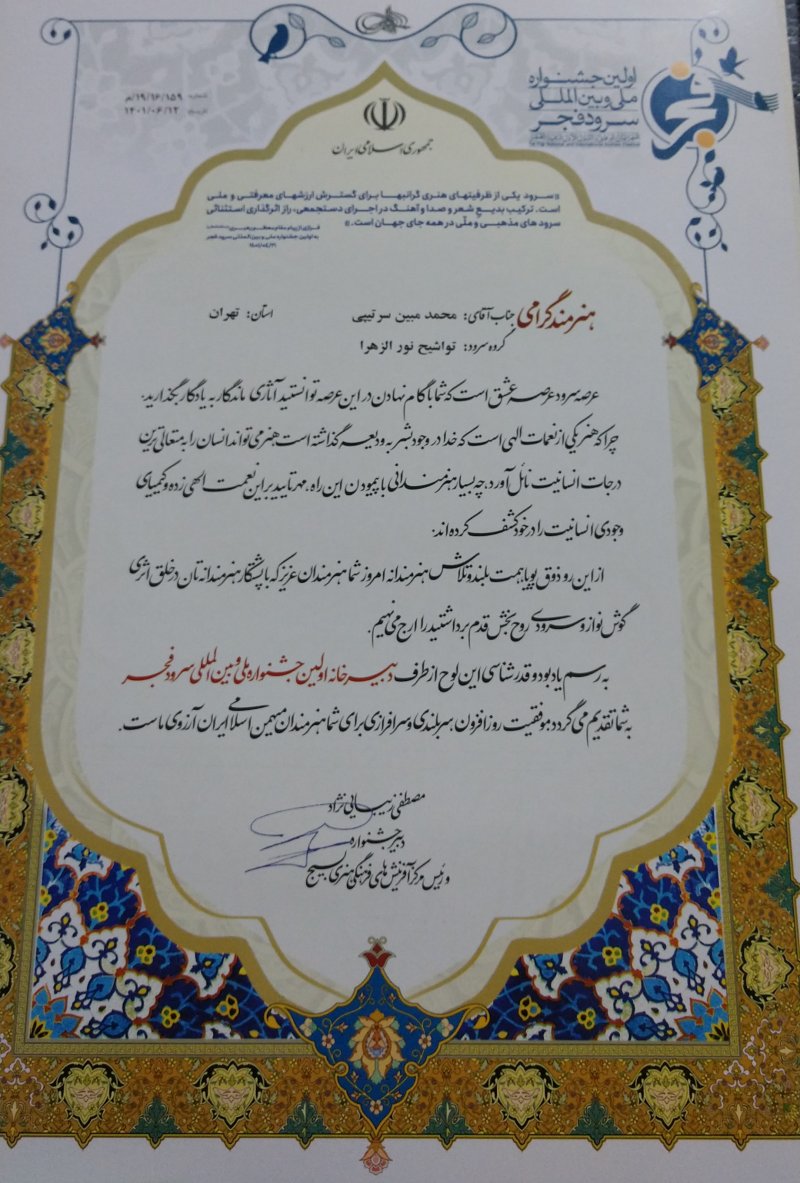 اولین جشنواره
ملی و بین المللی
سرود فجر
شماره: ۱۹/۱۶/۱۵۹/م
تاریخ: ۱۴۰۱/۰۶/۱۲
جمهوری اسلامی ایران
«سرود یکی از ظرفیتهای هنری گرانبها برای گسترش ارزشهای معرفتی و ملی
است. ترکیب بدیع شعر و صدا و آهنگ در اجرای دستجمعی، راز اثرگذاری استثنائی
سرود های مذهبی و ملّی در همه جای جهان است.»
فرازی از پیام مقام معظم رهبری
به اولین جشنواره ملی و بین المللی سرود فجر
هنرمند گرامی جناب آقای: محمد مبین سرتیپی استان: تهران
گروه سرود: تواشیح نور الزهرا
عرصه سرود عرصه عشق است که شما با گام نهادن در این عرصه توانستید آثاری ماندگار به یادگار بگذارید.
چرا که هنر یکی از نعمات الهی است که خدا در وجود بشر به ودیعه گذاشته است هنر می تواند انسان را به متعالی ترین
درجات انسانیت نائل آورد، چه بسیار هنرمندانی با پیمودن این راه، مهر تایید بر این نعمت الهی زده و کیمیای
وجودی انسانیت را در خود کشف کرده اند.
از این رو ذوق پویا، همت بلند و تلاش هنرمندانه امروز شما هنرمندان عزیز که با پشتکار هنرمندانه تان در خلق اثری
گوش نواز و سرودی روح بخش قدم برداشتید را ارج می نهیم.
به رسم یادبود و قدرشناسی این لوح از طرف دبیرخانه اولین جشنواره ملی و بین المللی سرود فجر
به شما تقدیم می گردد، موفقیت روزافزون، سربلندی و سرافرازی برای شما هنرمندان میهن اسلامی ایران آرزوی ماست.
مصطفی زیبایی نژاد
دبیر جشنواره
و رئیس مرکز آفرینش های فرهنگی هنری بسیج